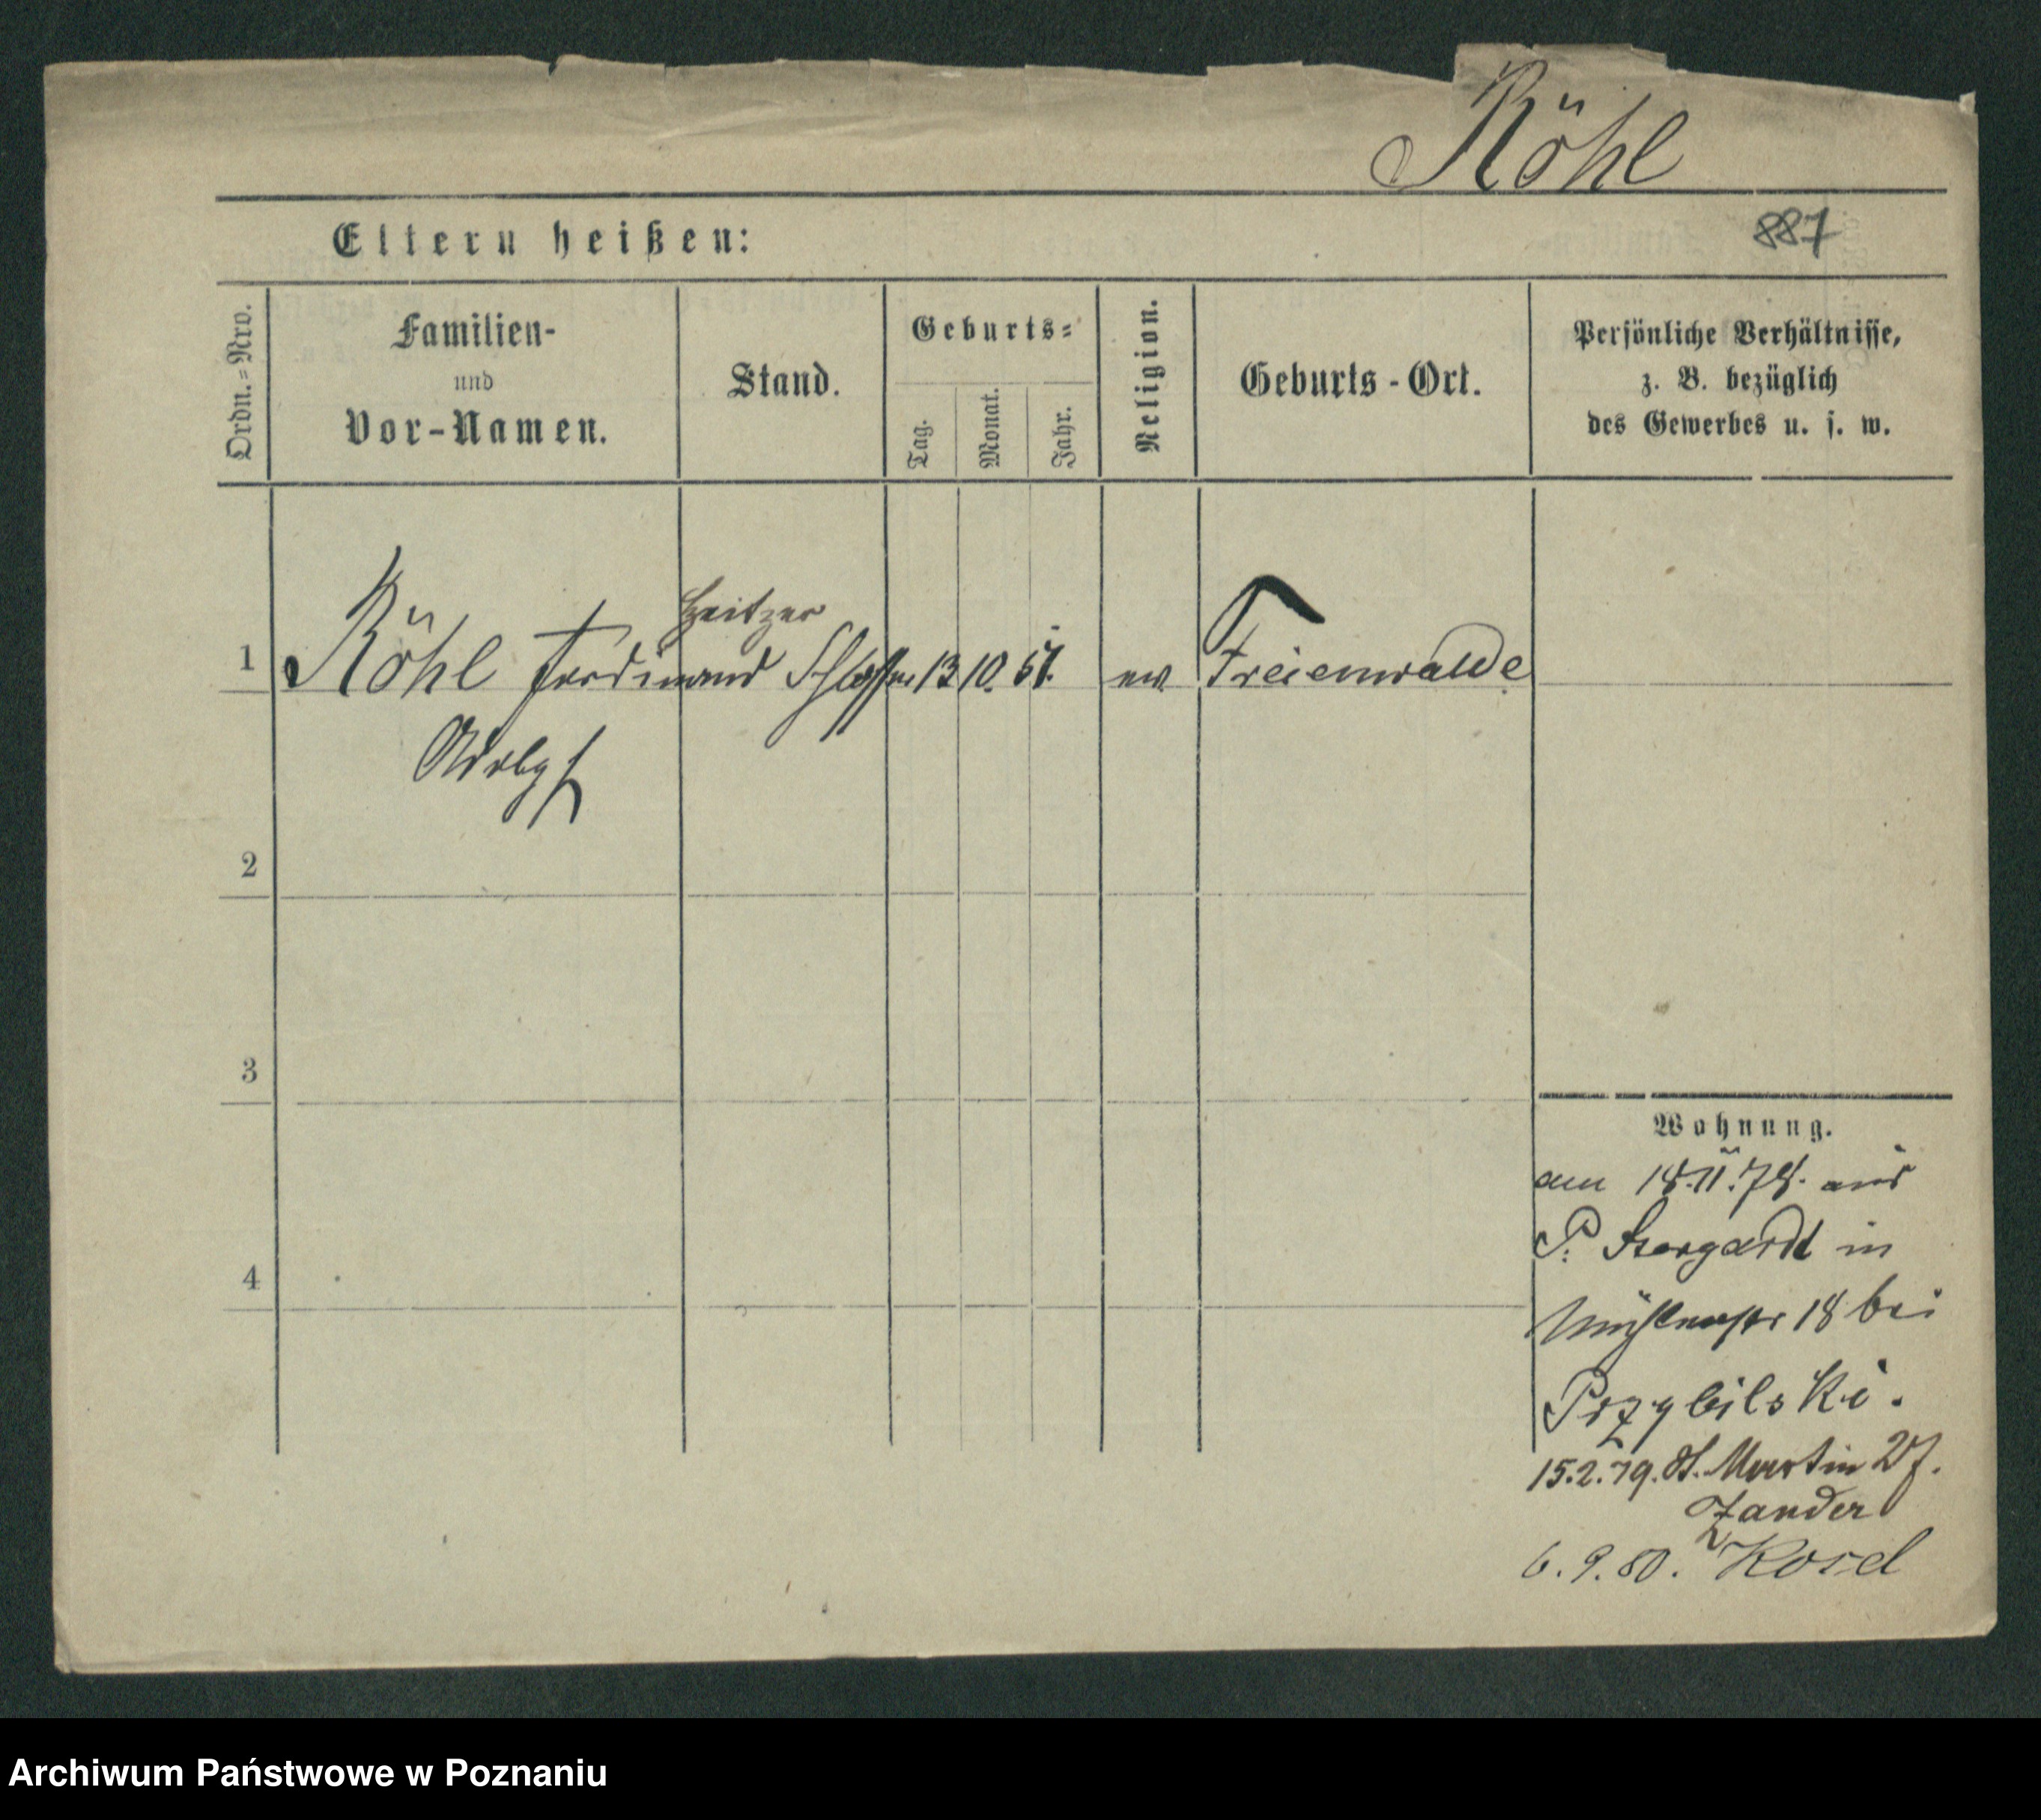 Röhl
887
Eltern heißen:
Ordn.=Nro.
Familien-
und
Vor-Namen.
Stand.
Geburts=
Tag.
Monat.
Jahr.
Religion.
Geburts-Ort.
Persönliche Verhältnisse,
z. B. bezüglich
des Gewerbes u. s. w.
Heitzer
1 Röhl Ferdinand Schlosser 13 10. 57. ev. Freienwalde
Adolph
2
3
4
Wohnung.
am 18.11.78. aus
P. Stargardt in
Mühlenstr 18 bei
Przybilski.
15.2.79. St. Martin 27.
Zander
6.9.80. Kosel
Archiwum Państwowe w Poznaniu